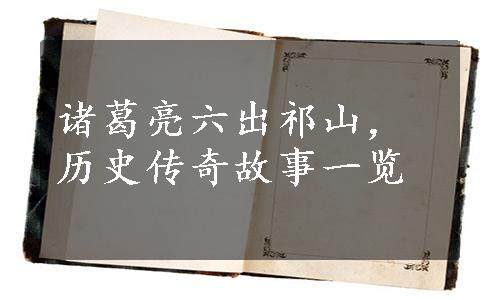 诸葛亮六出祁山，
历史传奇故事一览